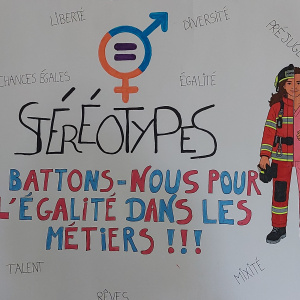 LIBERTÉ
DIVERSITÉ
PRÉJUGÉ
CHANCES ÉGALES
ÉGALITÉ
STÉRÉOTYPES
BATTONS-NOUS POUR
L'ÉGALITÉ DANS LES
MÉTIERS !!!
TALENT
MIXITÉ
RÊVES